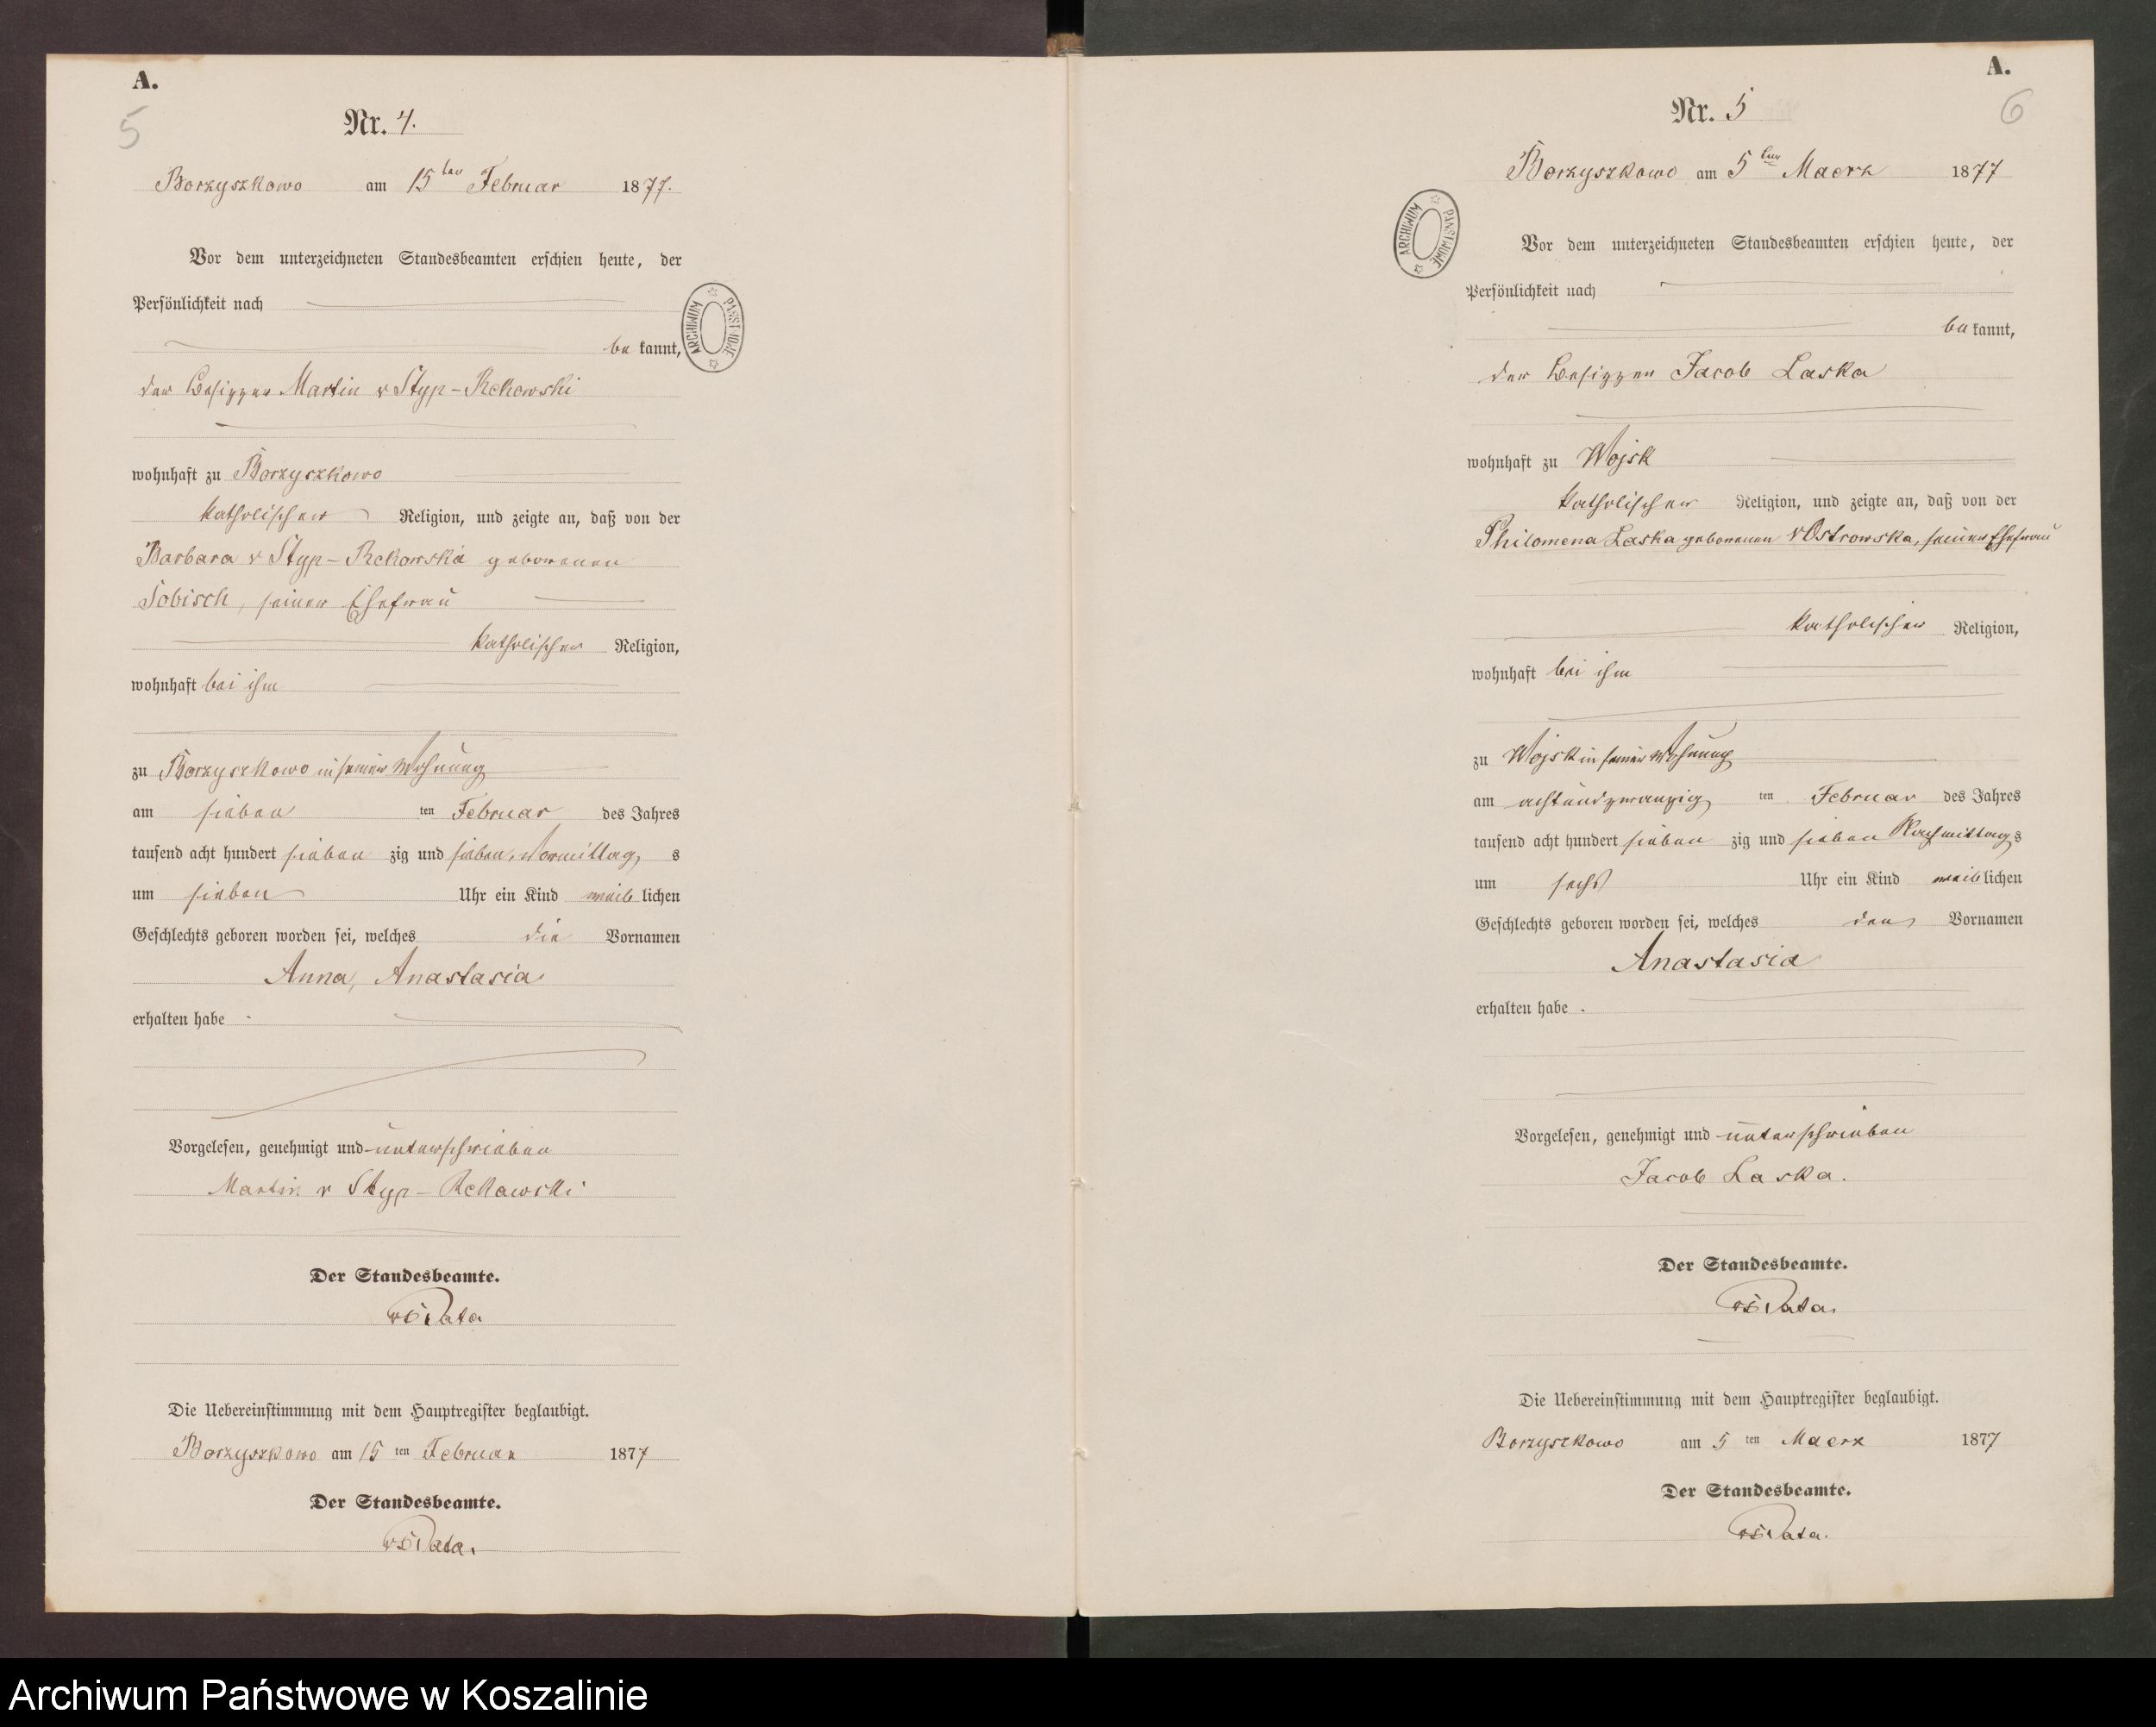 A.
5
Nr. 4.
Borzyszkowo am 15ten Februar 1877.
Vor dem unterzeichneten Standesbeamten erschien heute, der
Persönlichkeit nach
bekannt,
der Besitzer Martin v Styp-Rekowski
wohnhaft zu Borzyszkowo
katholischer Religion, und zeigte an, daß von der
Barbara v Styp-Rekowska geborenen
Tobisch, seiner Ehefrau
katholischer Religion,
wohnhaft bei ihm
zu Borzyszkowo in seiner Wohnung
am sieben ten Februar des Jahres
tausend acht hundert sieben zig und sieben, Vormittag s
um sieben Uhr ein Kind weiblichen
Geschlechts geboren worden sei, welches die Vornamen
Anna, Anastasia
erhalten habe.
Vorgelesen, genehmigt und unterschrieben
Martin v Styp-Rekowski
Der Standesbeamte.
Die Uebereinstimmung mit dem Hauptregister beglaubigt.
Borzyszkowo am 15 ten Februar 1877
Der Standesbeamte.
ARCHIWUM PAŃSTWOWE
A.
6
Nr. 5
Borzyszkowo am 5ten Maerz 1877
Vor dem unterzeichneten Standesbeamten erschien heute, der
Persönlichkeit nach
bekannt,
der Besitzer Jacob Laska
wohnhaft zu Wojsk
katholischer Religion, und zeigte an, daß von der
Philomena Laska geborenen v Ostrowska, seiner Ehefrau
katholischer Religion,
wohnhaft bei ihm
zu Wojsk in seiner Wohnung
am achtundzwanzig ten Februar des Jahres
tausend acht hundert sieben zig und sieben Nachmittag s
um sechs Uhr ein Kind weiblichen
Geschlechts geboren worden sei, welches den Vornamen
Anastasia
erhalten habe.
Vorgelesen, genehmigt und unterschrieben
Jacob Laska.
Der Standesbeamte.
Die Uebereinstimmung mit dem Hauptregister beglaubigt.
Borzyszkowo am 5 ten Maerz 1877
Der Standesbeamte.
ARCHIWUM PAŃSTWOWE
Archiwum Państwowe w Koszalinie